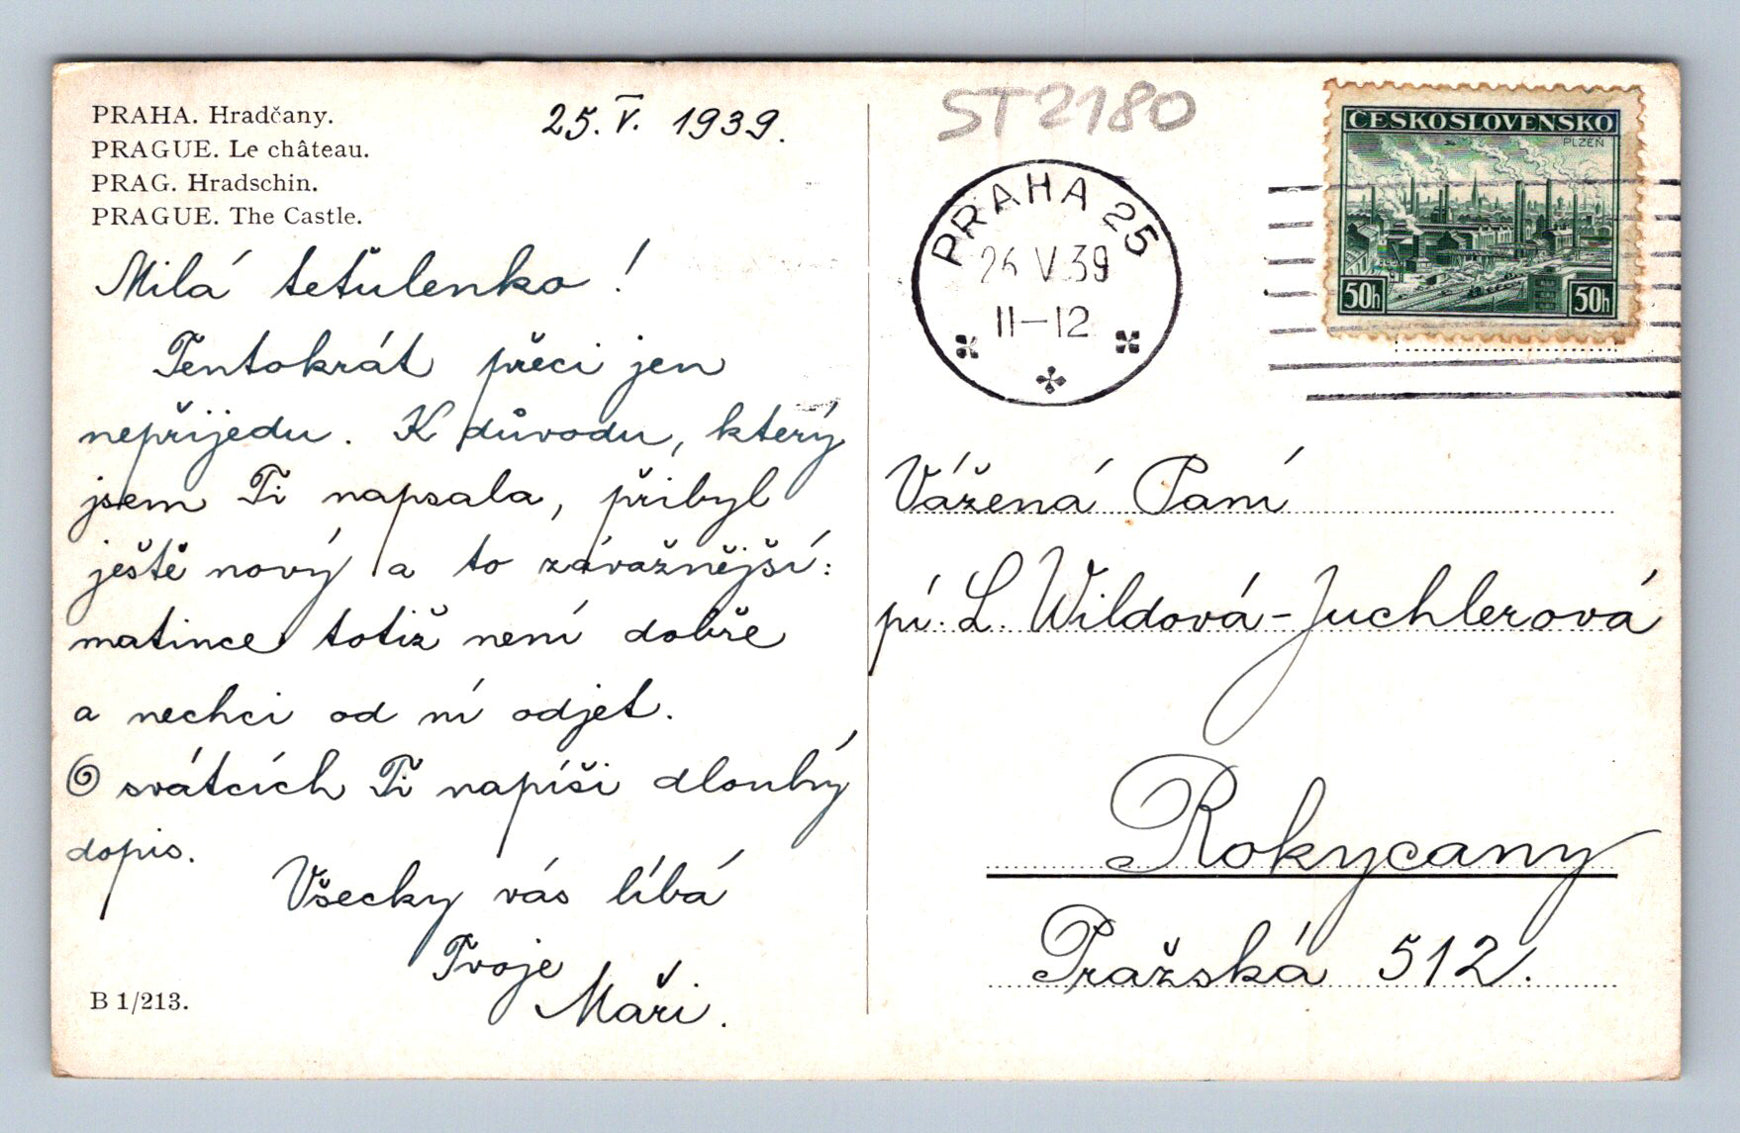 PRAHA. Hradčany.
PRAGUE. Le château.
PRAG. Hradschin.
PRAGUE. The Castle.
25. V. 1939.
Milá tetulenko!
Tentokrát přeci jen
nepřijedu. K důvodu, který
jsem Ti napsala, přibyl
ještě nový a to závažnější:
matince totiž není dobře
a nechci od ní odjet.
O svátcích Ti napíši dlouhý
dopis.
Všecky vás líbá
Tvoje
Maři.
B 1/213.
ST2180
PRAHA 25
26 V.39
11-12
ČESKOSLOVENSKO
PLZEŇ
50h
50h
Vážená Paní
pí. L. Wildová-Juchlerová
Rokycany
Pražská 512.